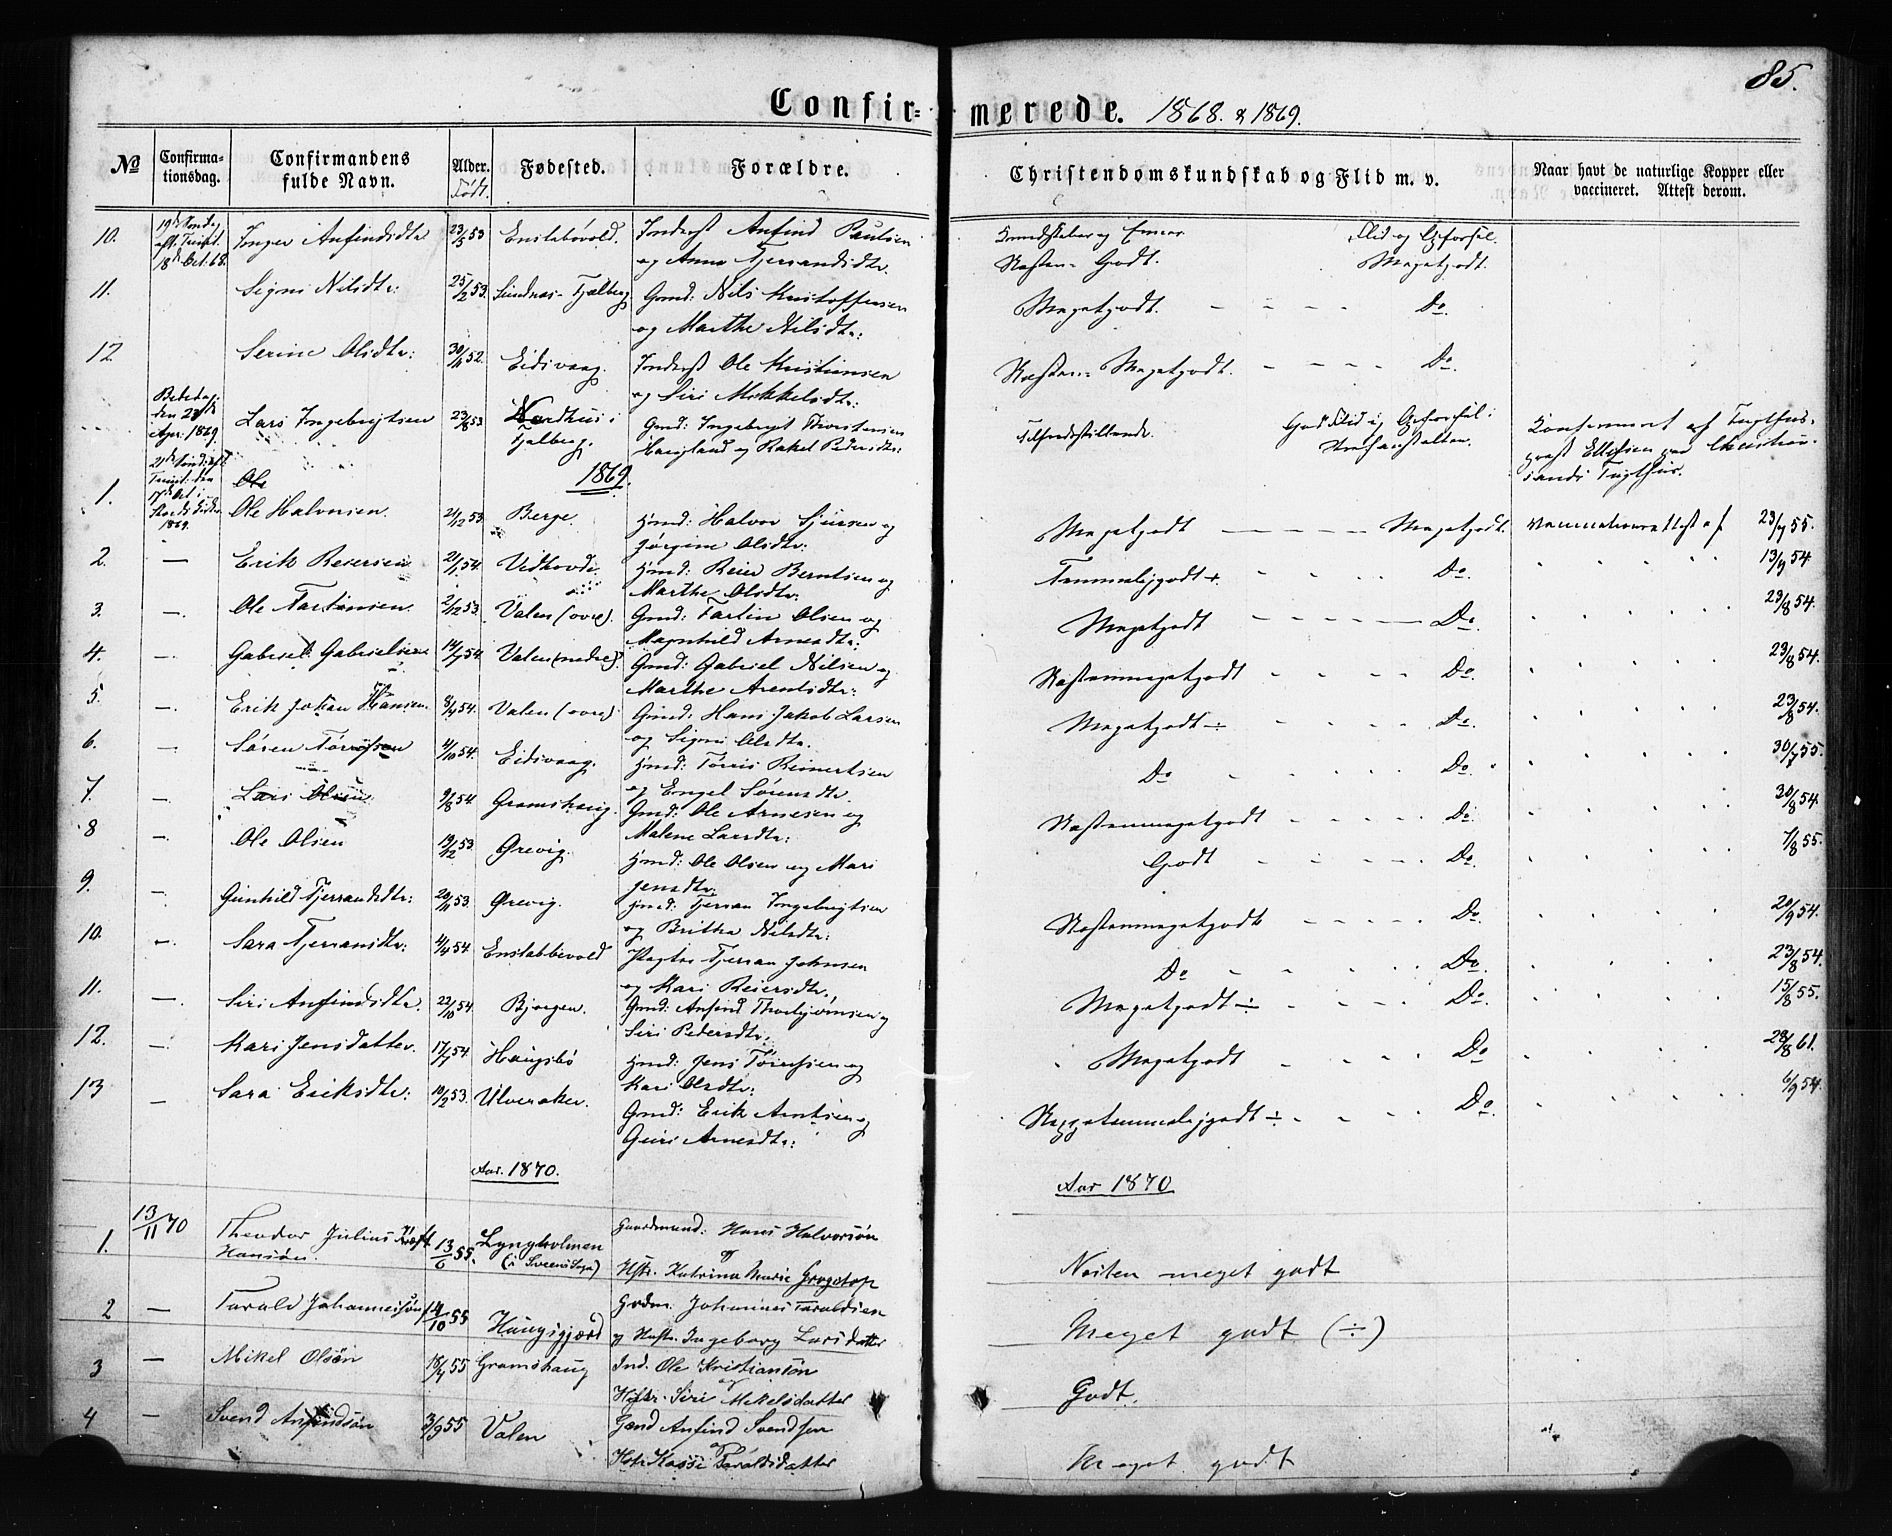 85.
Confir= merede. 1868. & 1869.
No
Confirma-
tionsdag.
Confirmandens
fulde Navn.
Alder.
Født.
Fødested.
Forældre.
Christendomskundskab og Flid m. v.
Naar havt de naturlige Kopper eller
vaccineret. Attest derom.
10. 18de Oct. 68. Inger Anfindsdtr 23/5 53 Enstabövold. Inderst Anfind Paulsen
og Anna Tjerrandsdtr.
Kundskaber og Evner Flid og Opførsel.
Næsten = Godt. Megetgodt.
11. Signi Nilsdtr: 25/2 53. Sundnæs - Fjelberg Gmd: Nils Kristoffersen
og Marthe Nilsdtr:
Megetgodt. Do.
12. Serine Olsdtr: 30/11 52. Eidsvaag. Inderst Ole Kristiansen
og Siri Mikkelsdtr:
Næsten = Megetgodt. Do.
Bededag.
den 23de
Apr. 1869. Lars Ingebrigtsen 23/8 53 Nordhus i
Fjelberg. Gmd: Ingebrigt Thorstensen
Haugland og Rakel Pedersdtr:
Tilfredsstillende. God Flid og Opførsel i
Strafanstalten.
Konfirmert af Tugthus-
præst Ellefsen paa Christian-
sands Tugthus.
1869.
1. 17de Oct i
1869. Ole
Ole Halvorsen. 21/12 53. Berge. Hmd: Halvor Sjursen og
Jørgine Olsdtr:
Megetgodt Megetgodt. Vaccinationsattest af 23/7 55.
2. — Erik Reiersen 21/1 54. Vidhovde. Hmd: Reier Berntsen og
Marthe Olsdtr:
Temmeliggodt + Do. 13/9 54
3. — Ole Fartinsen. 2/12 53. Valen (øvre). Gmd: Fartin Olsen og
Magnhild Arnesdtr:
Megetgodt Do. 23/8 54.
4. — Gabriel Gabrielsen 14/7 54. Valen (nedre). Gmd: Gabriel Nilsen og
Marthe Arentsdtr:
Næstenmegetgodt Do. 23/8 54.
5. — Erik Johan Hansen. 8/4 54. Valen (øvre) Gmd: Hans Jakob Larsen
og Signi Olsdtr.
Megetgodt ÷ Do. 23/8 54.
6. — Søren Törrissen 4/10 54. Eidsvaag. Hmd: Törris Reinertsen
og Engel Sørensdtr.
Do Do. 30/7 55.
7. — Lars Olsen 9/8 54. Gramshaug. Gmd: Ole Arnesen og
Malene Larsdtr:
Næstenmegetgodt Do. 30/8 54.
8 — Ole Olsen 19/12 53. Grevig. Hmd: Ole Olsen og Mari
Jensdtr.
Godt Do. 7/8 55.
9. — Gunhild Tjerrandsdtr: 20/11 53. Grevig. Hmd: Tjerran Ingebrigtsen
og Britha Nilsdtr:
Næstenmegetgodt Do. 20/9 54.
10. — Sara Tjerransdtr: 4/4 54 Enstabbevold Tjerran Johnsen
og Kari Reiersdtr.
Do Do. 23/8 54.
11. — Siri Anfindsdtr. 22/10 54. Bjørgen. Gmd: Anfind Thorbjörnsen og
Siri Pedersdtr.
Megetgodt ÷ Do. 15/8 55.
12. — Kari Jensdatter. 17/7 54. Haugsbö Hmd: Jens Törresen og
Kari Olsdtr:
Megetgodt Do 28/8 61.
13 — Sara Eriksdtr: 10/2 53. Ulveraker. Gmd: Erik Arntsen og
Guri Arnesdtr:
Do. 6/9 54.
Aar. 1870. Aar 1870
1. 13/11 70 Theodor Julius
Hansön. 13/6 55. Lyngholmen
(i Sveens Sogn) Gaardmand: Hans Halvorsön
og
Hstr. Katrina Marie
Næsten meget godt
2 — Tarald Johannessön 4/10 55 Haugsgjærd Grdm. Johannes Taraldsen
og Hustr. Ingeborg Larsdatter
Meget godt (÷)
3 — Mikel Olsön 18/4 55 Gramshaug Ind. Ole Kristiansön
og
Hstr. Siri Mekelsdatter
Godt.
4 — Svend Anfindsön 3/9 55 Valen Gmd Anfind Svendsen
og
Hstr Kassi Taraldsdatter
Meget godt